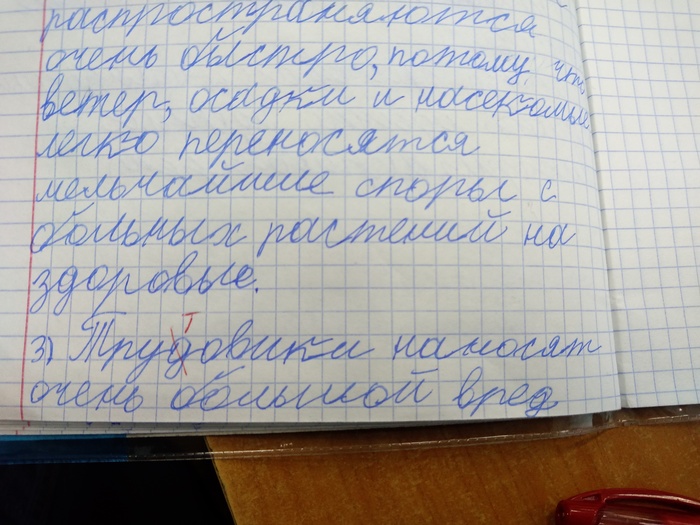 распространяются
очень быстро, потому что
ветер, осадки и насекомые
легко переносятся
мельчайшие споры с
больных растений на
здоровые.
т
3) Трудовики наносят
очень большой вред